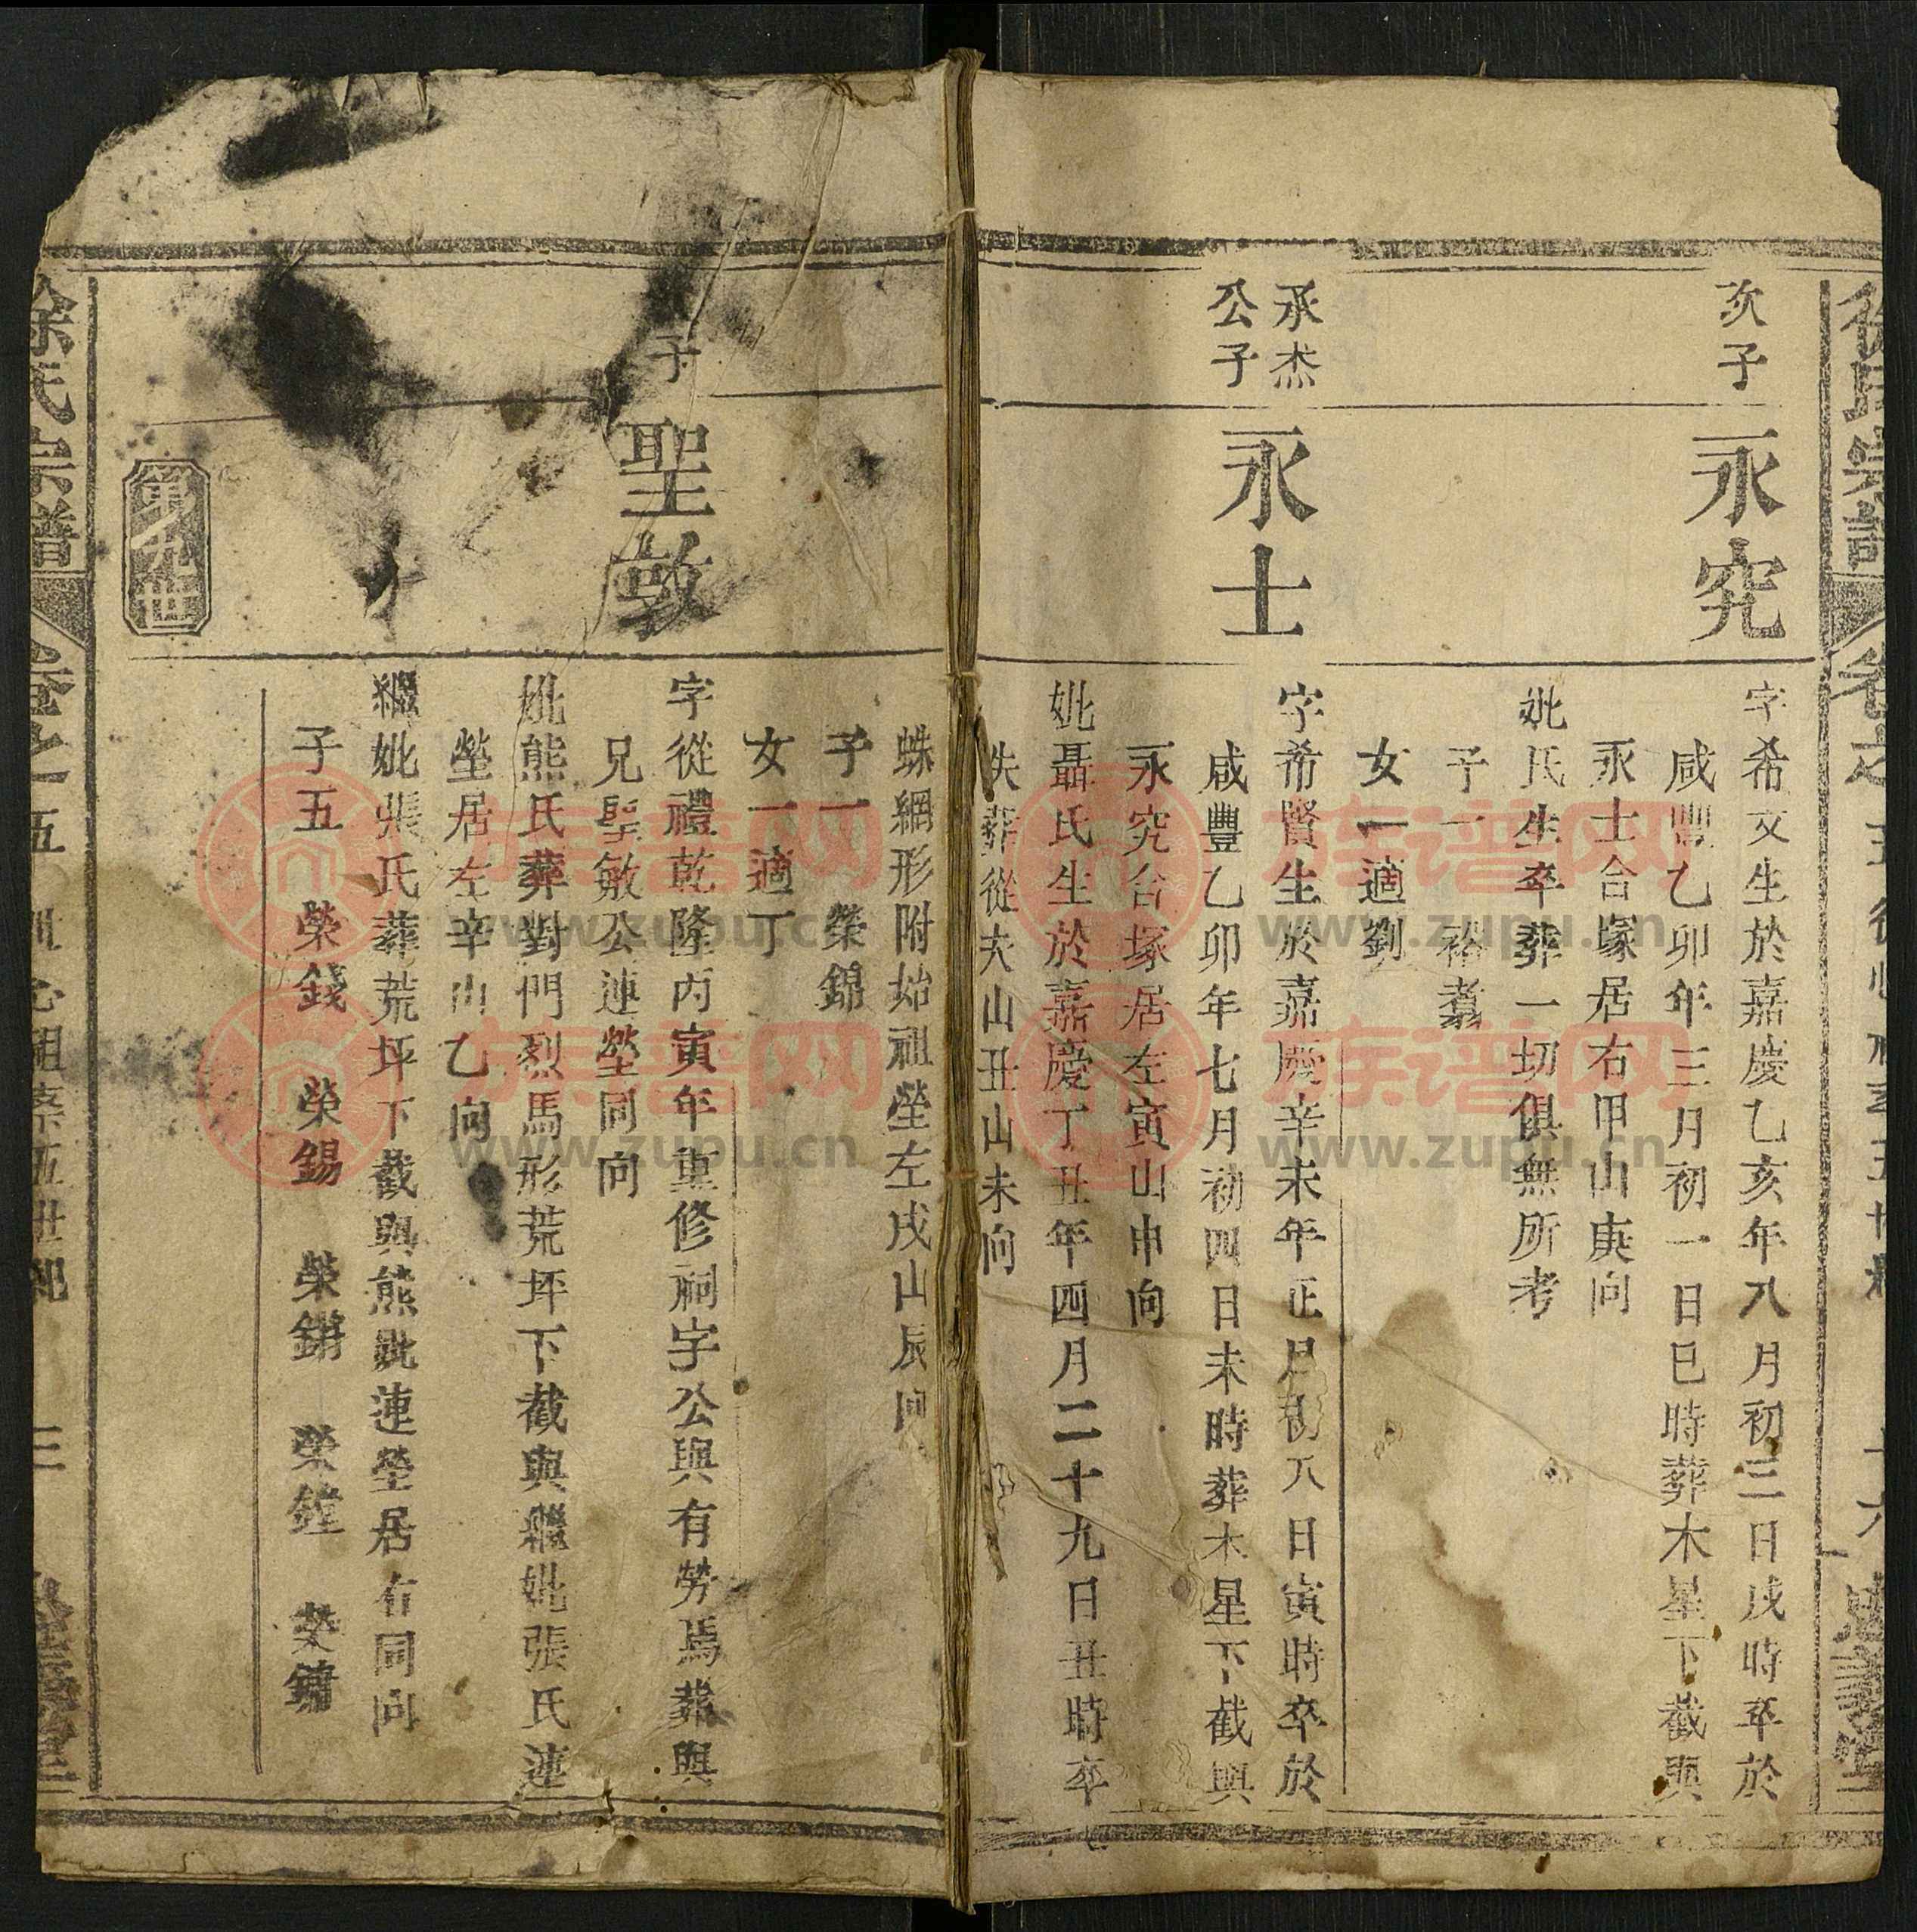 徐氏宗譜
卷之五
十八
忠義堂
次子
永究
字希文生於嘉慶乙亥年八月初三日戌時卒於
咸豐乙卯年三月初一日巳時葬木星下截與
永士合塚居右甲山庚向
妣氏生卒葬一切俱無所考
子一 裕耋
女一適劉
承杰
公子
永士
字希賢生於嘉慶辛未年正月初八日寅時卒於
咸豐乙卯年七月初四日未時葬木星下截與
永究合塚居左寅山申向
妣聶氏生於嘉慶丁丑年四月二十九日丑時卒
失葬從夫山丑山未向
蛛網形附始祖塋左戌山辰向
子一 榮錦
女一適丁
子
聖敦
字從禮乾隆丙寅年重修祠宇公與有勞焉葬與
兄聖敏公連塋同向
妣熊氏葬對門烈馬形荒坪下截與繼妣張氏連
塋居左辛山乙向
繼妣張氏葬荒坪下截與熊妣連塋居右同向
子五 榮錢 榮錫 榮鏘 榮鐘 榮鏞
第九世
徐氏宗譜
卷之五
三
族譜网
www.zupu.cn
族譜网
www.zupu.cn
族譜网
www.zupu.cn
族譜网
www.zupu.cn